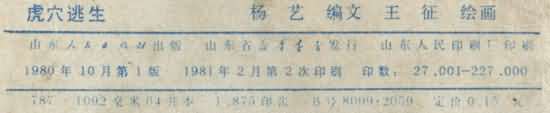 虎穴逃生 杨艺 编文 王征 绘画
山东人民出版社出版 山东省新华书店发行 山东人民印刷厂印刷
1980年10月第1版 1981年2月第2次印刷 印数：27,001—227,000
787×1092毫米64开本 1.875印张 书号8099·2059 定价0.15元